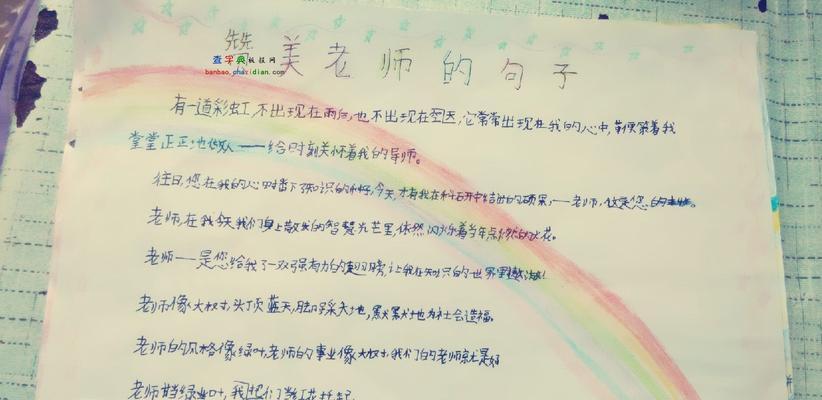 赞美老师的句子
查字典板报网
banbao.chazidian.com
有一道彩虹,不出现在雨后,也不出现在空,它常常出现在我的心中,着我
堂堂正正地做人——给时刻关怀着我的导师。
往日,您在我的心田播下知识的,今天,才有我在科研中结出的硕果,——老师,这是您的
老师在我今天我们身上散发的智慧光芒里,依然闪烁着当年点燃的火花。
老师——是您给我了一双强有力的翅膀,让我在知识的世界里遨游!
老师像大树,头顶蓝天,脚踩大地,默默地为社会造福。
老师的风格像绿叶,老师的事业像大树,我们的老师就是好
老师当绿叶,我们当红花